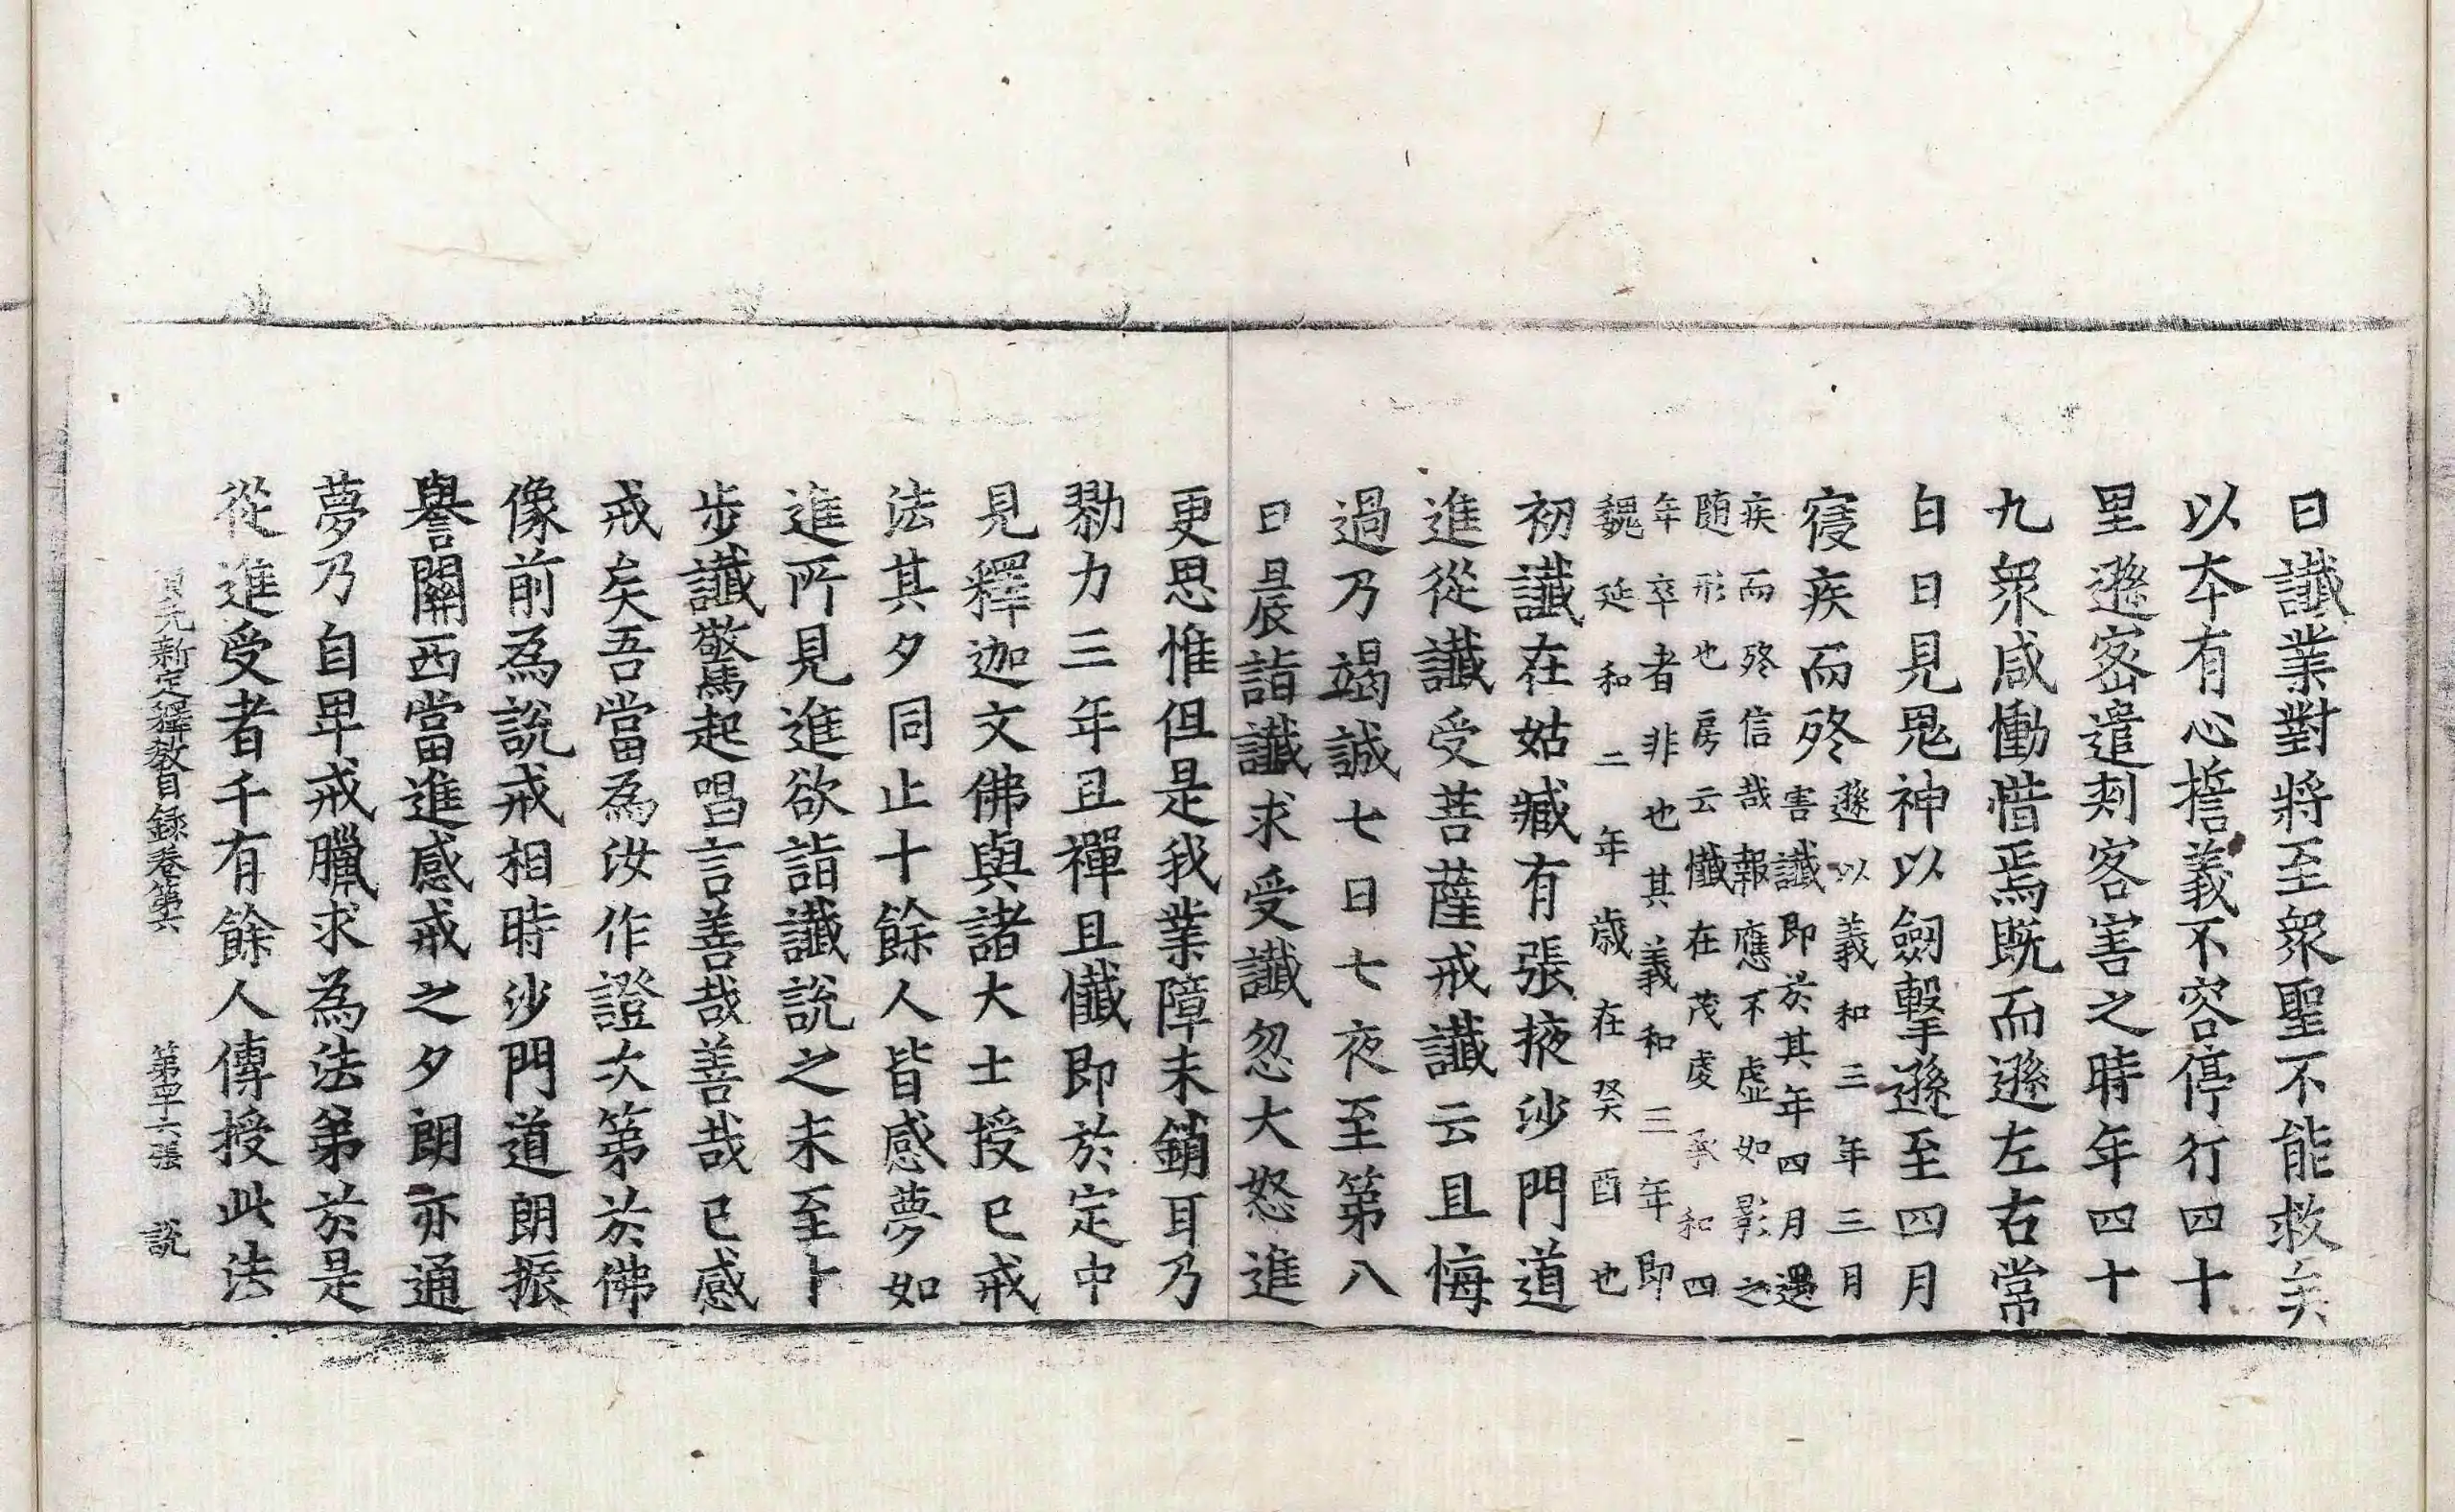 曰讖業對將至衆聖不能救矣
以夲有心誓義不容停行四十
里遜密遣刾客害之時年四十
九衆咸慟惜焉既而遜左右常
白日見鬼神以劒擊遜至四月
寑疾而終遜以義和三年三月
害讖即於其年四月遇
疾而終信哉報應不虛如影之
随形也房云懺在茂虔承和四
年卒者非也其義和三年即
魏延和二年歳在癸酉也
初讖在姑臧有張掖沙門道
進從讖受菩薩戒讖云且悔
過乃竭誠七日七夜至第八
日晨詣讖求受讖忽大怒進
更思惟但是我業障未銷耳乃
勠力三年且禪且懺即於定中
見釋迦文佛與諸大士授已戒
法其夕同止十餘人皆感夢如
進所見進欲詣讖說之未至十
步讖驚起唱言善哉善哉已感
戒矣吾當為汝作證次第於佛
像前為說戒相時沙門道朗振
譽關西當進感戒之夕朗亦通
夢乃自卑戒臘求為法弟於是
從進受者千有餘人傳授此法
貞元新定釋教目錄卷第六 第四十六張 說